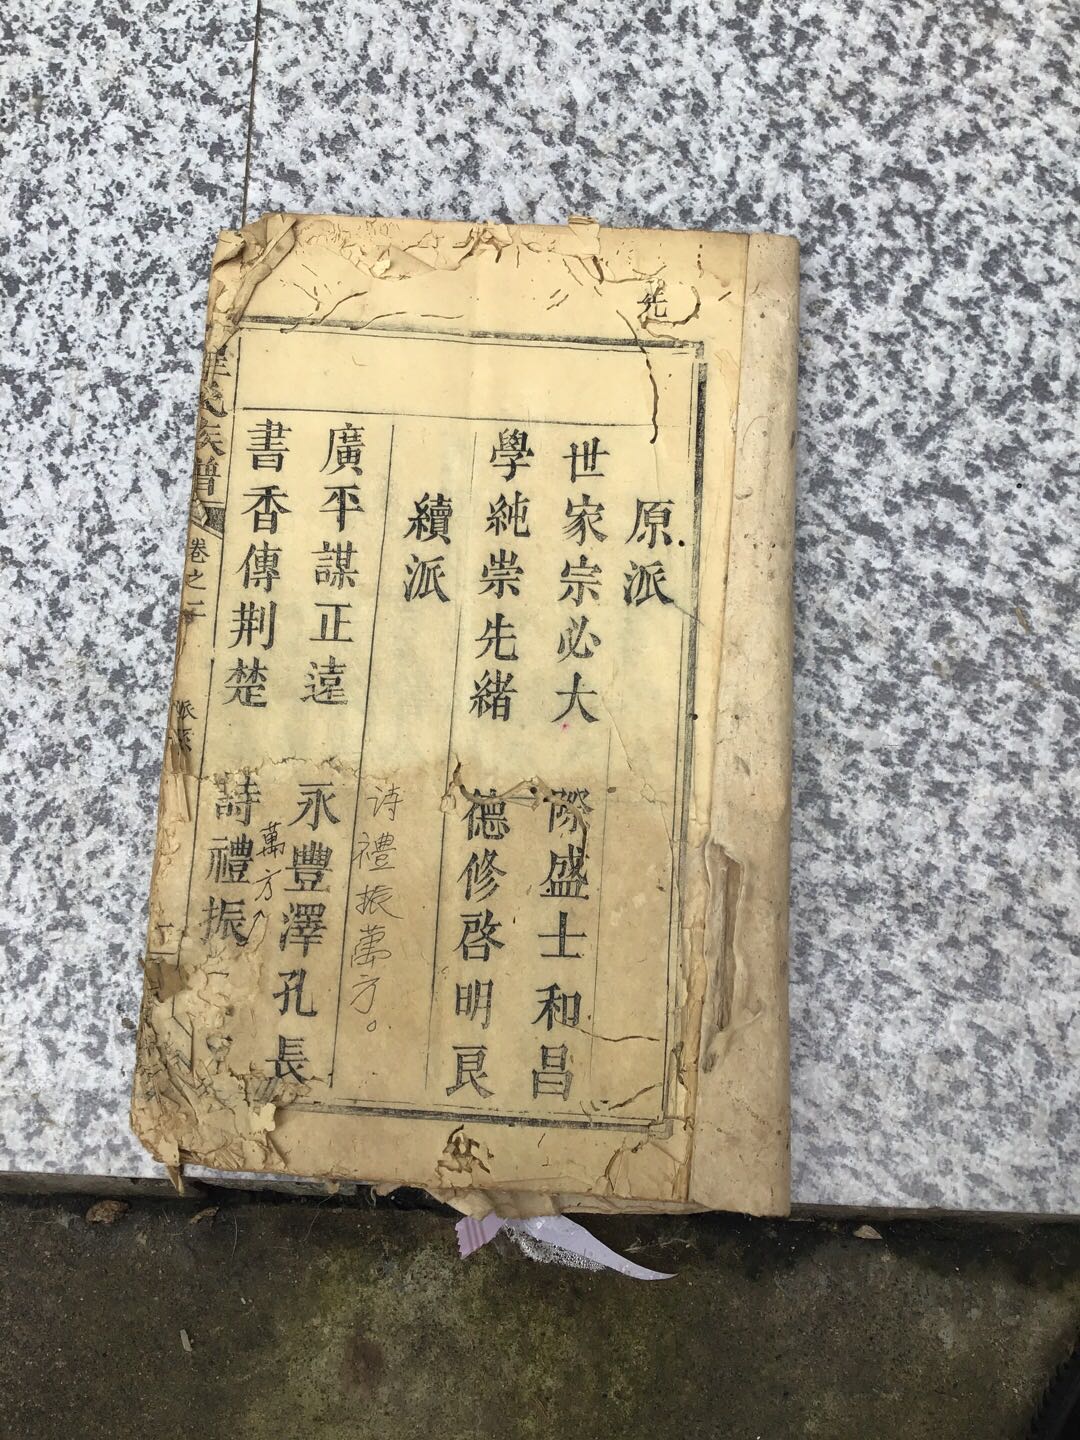 先
原派
世家宗必大　際盛士和昌
學純崇先緒　德修啓明良
續派
詩禮振萬方。
廣平謀正遠　永豐澤孔長
萬方
書香傳荆楚　詩禮振
氏族譜
卷之二
派系